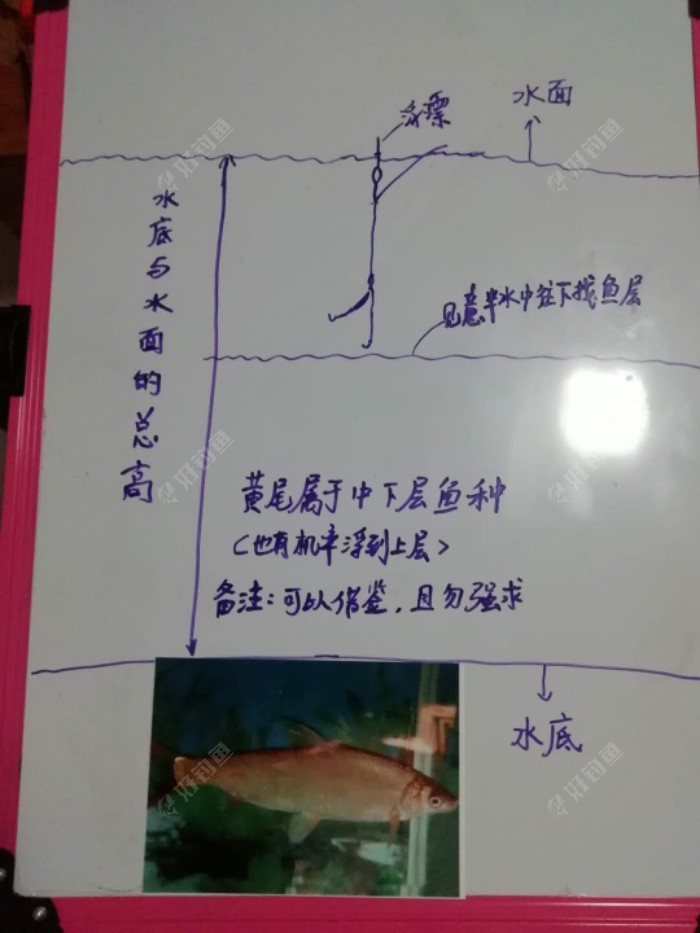 水面
泳票
水底与水面的总高
见意半水中往下找鱼层
黄尾属于中下层鱼种
(也有机率浮到上层)
备注:可以借鉴,且勿强求
水底
好钓鱼
好钓鱼
好钓鱼
好钓鱼
好钓鱼
好钓鱼